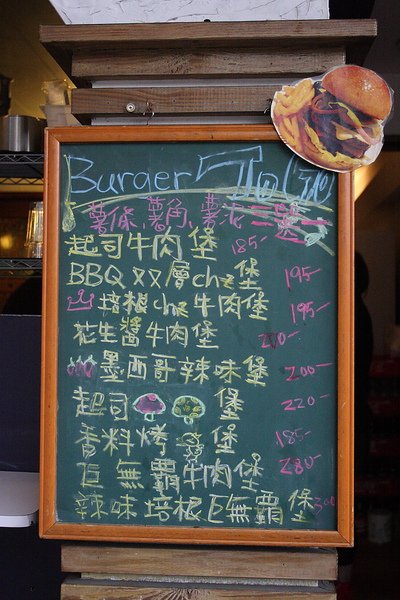 Burger
薯條,薯角,薯花三選一
起司牛肉堡 185-
BBQ 双層chz堡 195-
培根chz牛肉堡 195-
花生醬牛肉堡
墨西哥辣味堡 200-
起司 堡 220-
香料烤 堡 185-
巨無霸牛肉堡 280-
辣味培根巨無霸堡 300